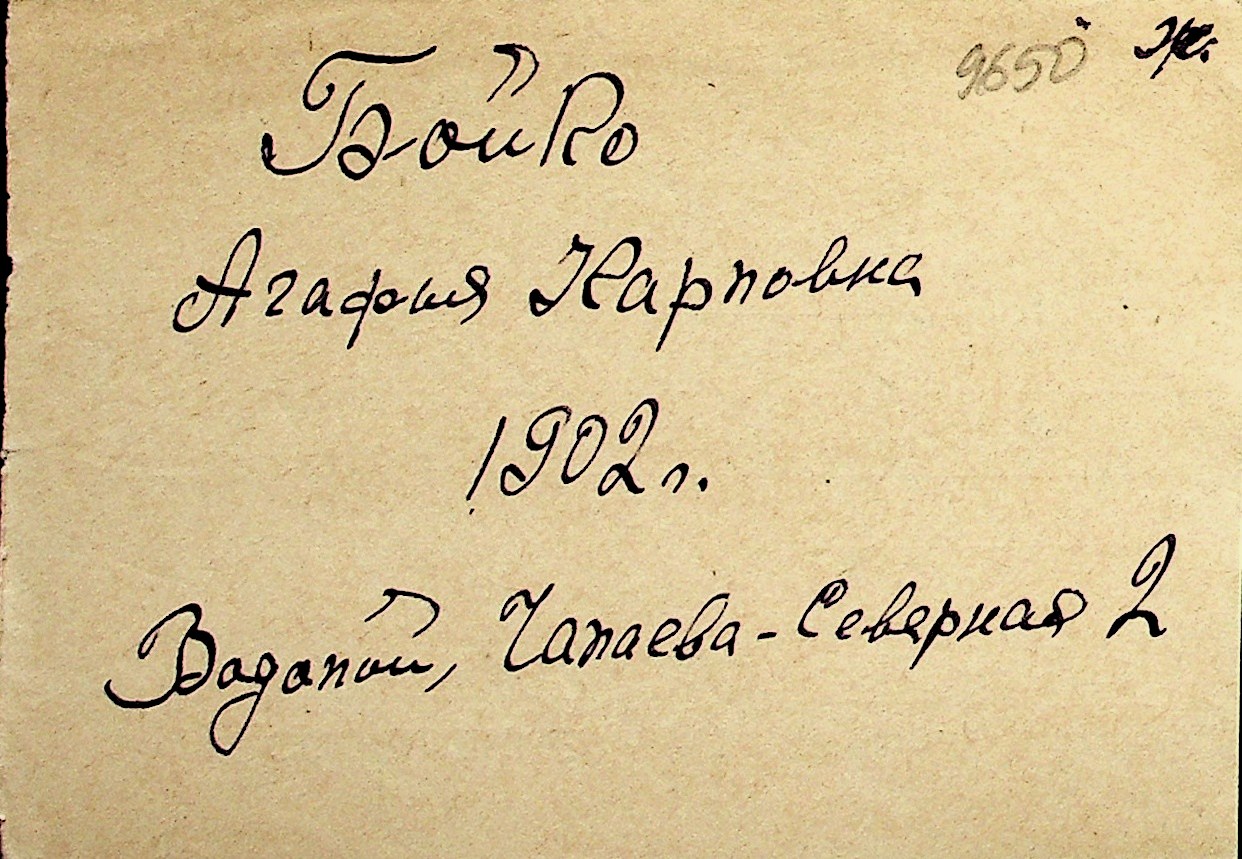 9650 ж.
Бойко
Агафия Карповна
1902 г.
Водопой, Чапаева-Северная 2